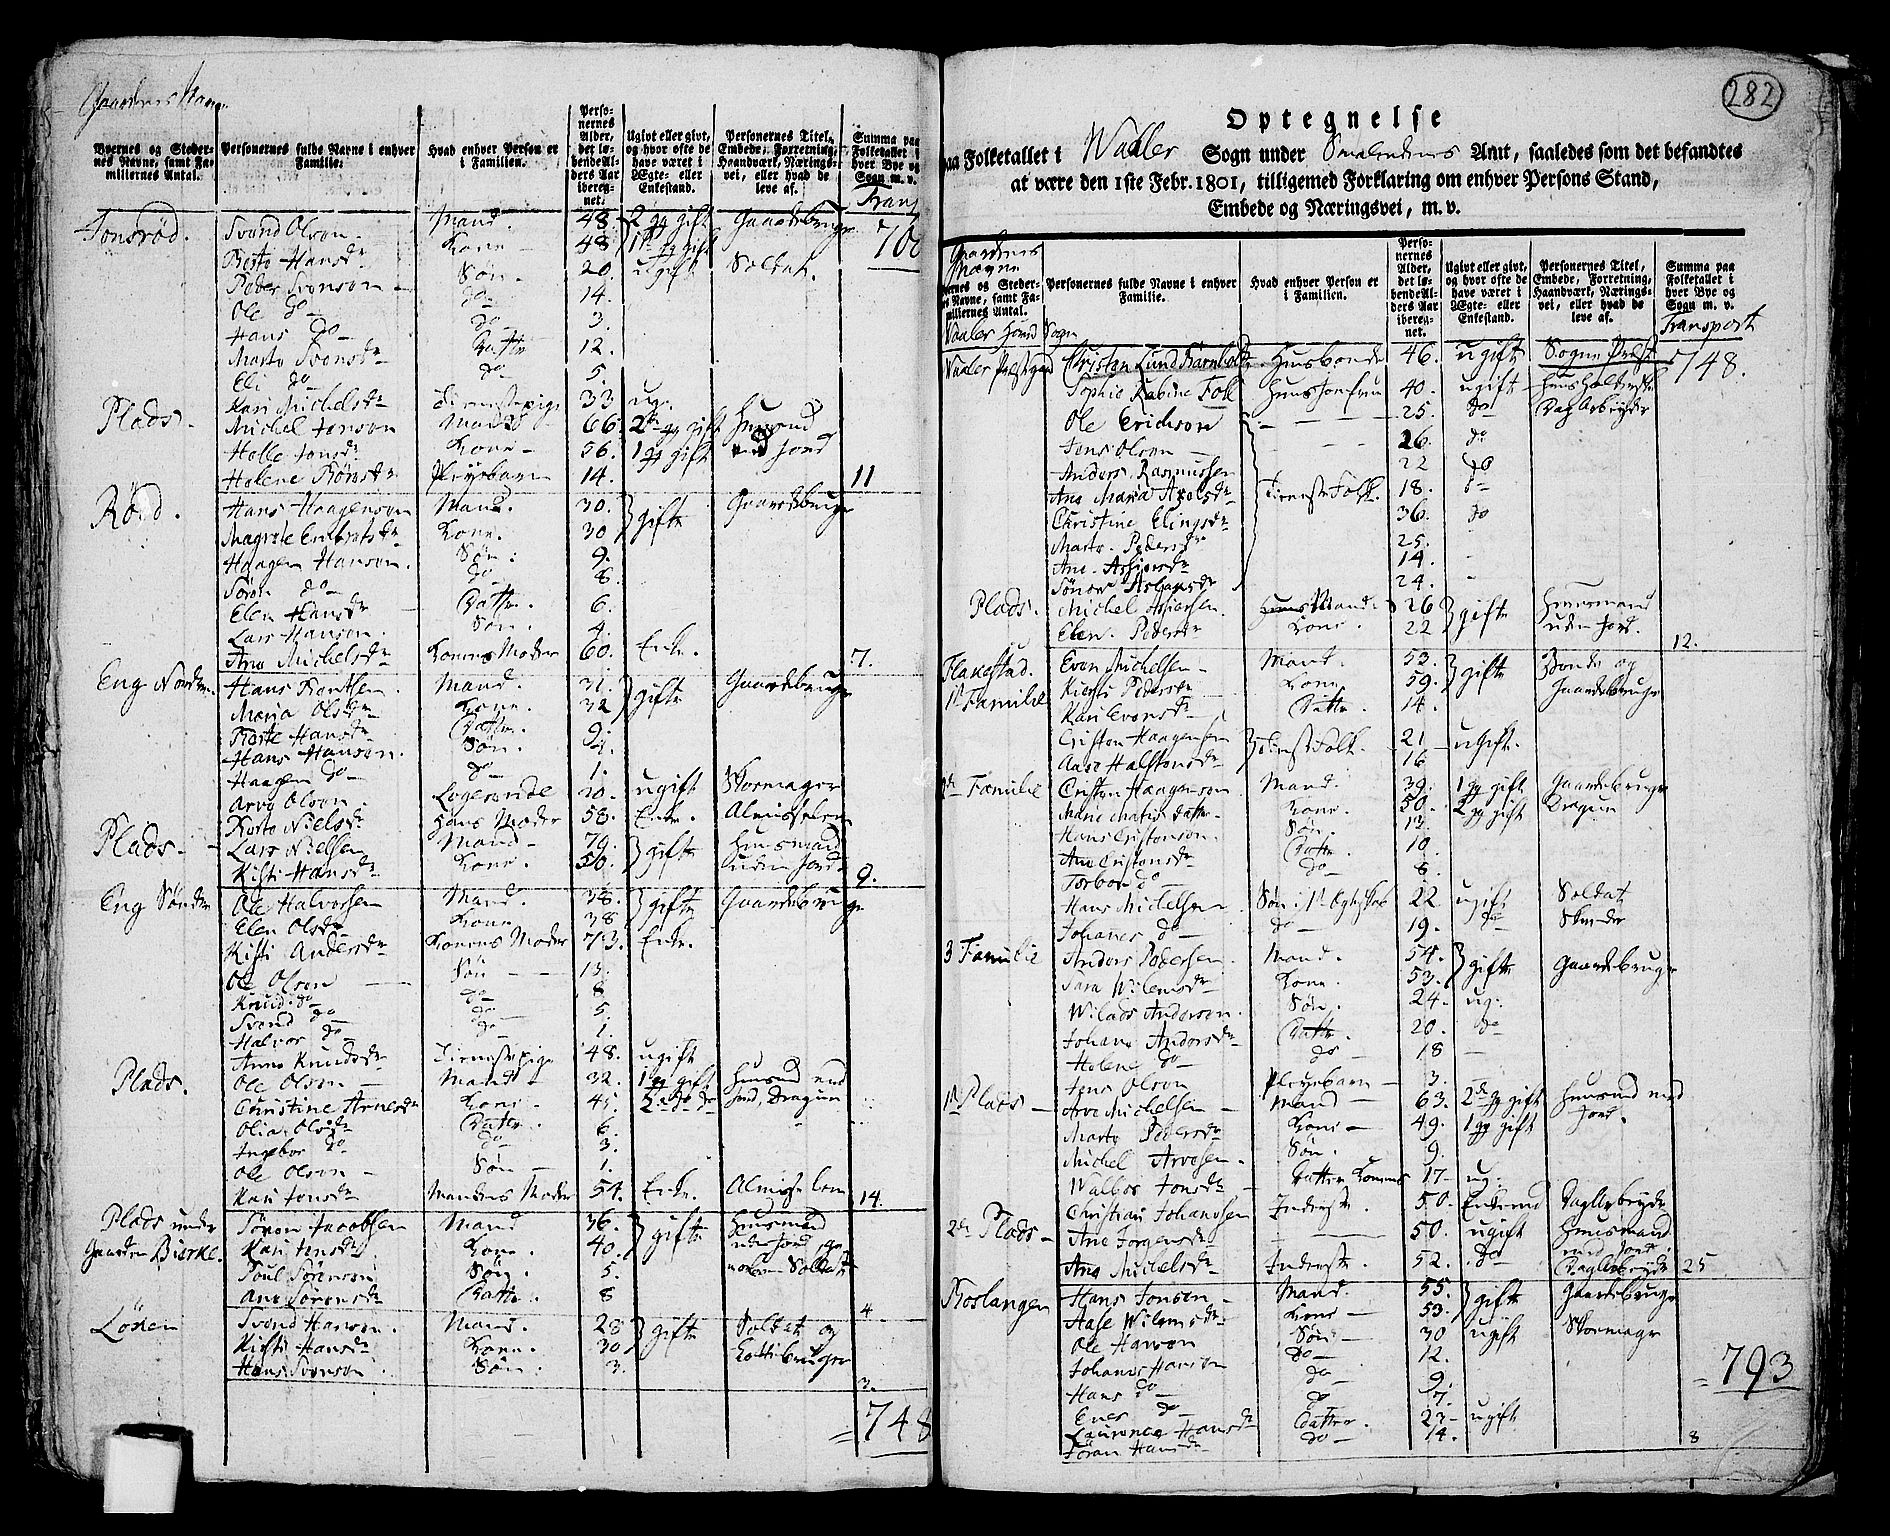 Gaardenes Navne
Byernes og Steder-
nes Navne, samt Fa-
miliernes Antal.
Personernes fulde Navne i enhver
Familie.
Hvad enhver Person er
i Familien.
Perso-
nernes
Alder,
det lø-
bende Al-
ders Aar
ibereg-
net.
Ugivt eller givt,
og hvor ofte de
have været i
Ægte- eller
Enkestand.
Personernes Titel,
Embede, Forretning,
Haandværk, Nærings-
vei, eller hvad de
leve af.
Summa paa
Folketallet i
hver Bye og
Sogn m. v.
Transp
Tonsrød. Svend Olson. Mand. 48. 2 gg gift Gaardebruger 700
Berte Hansdr Kone - 48 1te gg gift
Peder Svenson - Søn. 20. ugift Soldat.
Ole do - do 14.
Hans do - do 3.
Marte Svensdr Datter 12.
Eli do - do 5.
Kari Michelsdr Tienestepige 33 ug.
Plads. Michel Jonson Mand - 66. 2de gg gift Huusmd
Helle Jonsdr Kone - 56. 1 gg gift med Jord
Helene Børresdr Pleyebarn 14. 11
Rød. Hans Haagenson Mand. 30. gifte Gaardebruger
Magrete Embretsdr Kone. 30
Haagen Hanson. Søn. 9.
Søren do - do 8.
Elen Hansdr - Datter. 6.
Lars Hanson. Søn. 4.
Ane Michelsdr Konens Moder 60. Enke. 7.
Eng Nordre. Hans Bentsen. Mand. 31. gifte Gaardebruger
Maria Olsdr Kone. 32
Berte Hansdr Datter. 9.
Hans Hanson. Søn. 4.
Haagen do - do - 1.
Arve Olson. Logerende 20. ugift Skomager
Berte Nielsdr Hans Moder 58. Enke. Almisselem
Plads. - Lars Nielsen Mand - 79. gifte Huusmand
Kisti Hansdr Kone. 50. uden Jord 9.
Eng Søndre Ole Halvorsen Mand. 38. gifte Gaardebruger
Elen Olsdr Kone. 38
Kisti Andersdr Konens Moder 73. Enke.
Ole Olson Søn - 13.
Knud do do 8
Svend do do - 5.
Halvor do do - 1.
Anne Knudsdr Tienestepige 48. ugift
Plads. Ole Olson - Mand - 32. 1 gg gift Huusmd med
Christine Arnesdr Kone - 45. 2de do do Jord, Dragun
Olia Olsdr Datter. 6.
Ingebor do do 3.
Ole Olson - Søn - 1.
Kari Jonsdr Mandens Moder 54. Enke. Almisselem 14.
Plads under Søren Jacobsen Mand 36. gifte Huusmand
Gaarden Bierke. Kari Jensdr Kone. 40. uden Jord, ge-
Poul Sørenson Søn. 5. Soldat
Ane Sørensdr Datter. 8 4
Løken Svend Hanson. Mand. 28 gifte Soldat og
Kisti Hansdr Kone. 30
Hans Svenson Søn. 3. 3.
= 748
282
Optegnelse
paa Folketallet i Waaler Sogn under Smalenenes Amt, saaledes som det befandtes
at være den 1ste Febr. 1801, tilligemed Forklaring om enhver Persons Stand,
Embede og Næringsvei, m. v.
Gaardenes
Navne
Byernes og Steder-
nes Navne, samt Fa-
miliernes Antal.
Personernes fulde Navne i enhver
Familie.
Hvad enhver Person er
i Familien.
Perso-
nernes
Alder,
det lø-
bende Al-
ders Aar
ibereg-
net.
Ugivt eller givt,
og hvor ofte de
have været i
Ægte- eller
Enkestand.
Personernes Titel,
Embede, Forretning,
Haandværk, Nærings-
vei, eller hvad de
leve af.
Summa paa
Folketallet i
hver Bye og
Sogn m. v.
Transport
Waaler Hoved Sogn
Waaler Præstgrd Christen Lund Barnholdt Huusbonde 46. ugift Sogne Præst 748.
Sophie Rabine Foll Huus Jomfrue 40. ugift
Ole Erichson - 25. do Dag Arbeyder
Jens Olson - 26. do
Anders Rasmussen 22 do
Ane Maria Axelsdr Tieneste Folk. 18. do
Christine Elingsdr 36. do
Marte Pedersdr 25.
Ane 14. -
24. -
Plads. Michel Huus Mand 26 gifte Huusmand
Elen. Pedersdr Kone. 22 uden Jord. 12.
Flakestad. Even Michelsen - Mand. 53. gifte Bonde og
1te Familie Kiersti Pedersdr Kone 59. Gaardebruger
Kari Evensdr Datter. 14.
Cristen Haagensen Tieneste Folk. 21 ugift.
Aase Halstensdr 16
2de Familie Cristen Haagenson Mand. 39. 1 gg gift Gaardebruger
Marie Matis datter Kone. 50. 2 gg gift Dragun
Hans Cristenson. Søn. 13.
Ane Cristensdr Datter. 10.
Torbor do - do 8.
Hans Michelsen. Søn i 1te Egteskab 22 ugift Soldat
Johanes do - do - 19. do
3 Familie Anders Pedersen. Mand. 54. gifte Gaardebruger
Sara Wilemsdr Kone. 53.
Wilads Anderson. Søn. 24. ug.
Johane Andersdr Datter. 20. do
Helene do do - 18 -
Jens Olson Pleyebarn - 3.
1te Plads - Arve Michelsen - Mand - 63. 2de gg gift Huusmd med
Marte Pedersdr Kone - 49. 1 gg gift Jord.
Michel Arvesen. Søn. 9.
Walbor Jonsdr Datter Konens 17 - ug.
Christian Johannsen Inderste. 50. Enkemd Dagarbeyder
2de Plads - Ane Jørgensdr 50. ugift Huusmand
med Jord.
Ane Michelsdr Inderste. 52. do Dagarbeyder 25
Roslangen Hans Jonson - Mand. 55. gifte Gaardebruger
Aase Wilemsdr Kone - 53.
Ole Hanson Søn - 30 ugift Skomager
Johanes Hanson do - 12.
Hans do - do 9.
Enes do - do 7.
Laurence Hansdr Datter. 23 - ugift
Jøran Hansdr do - 14. 8
= 793